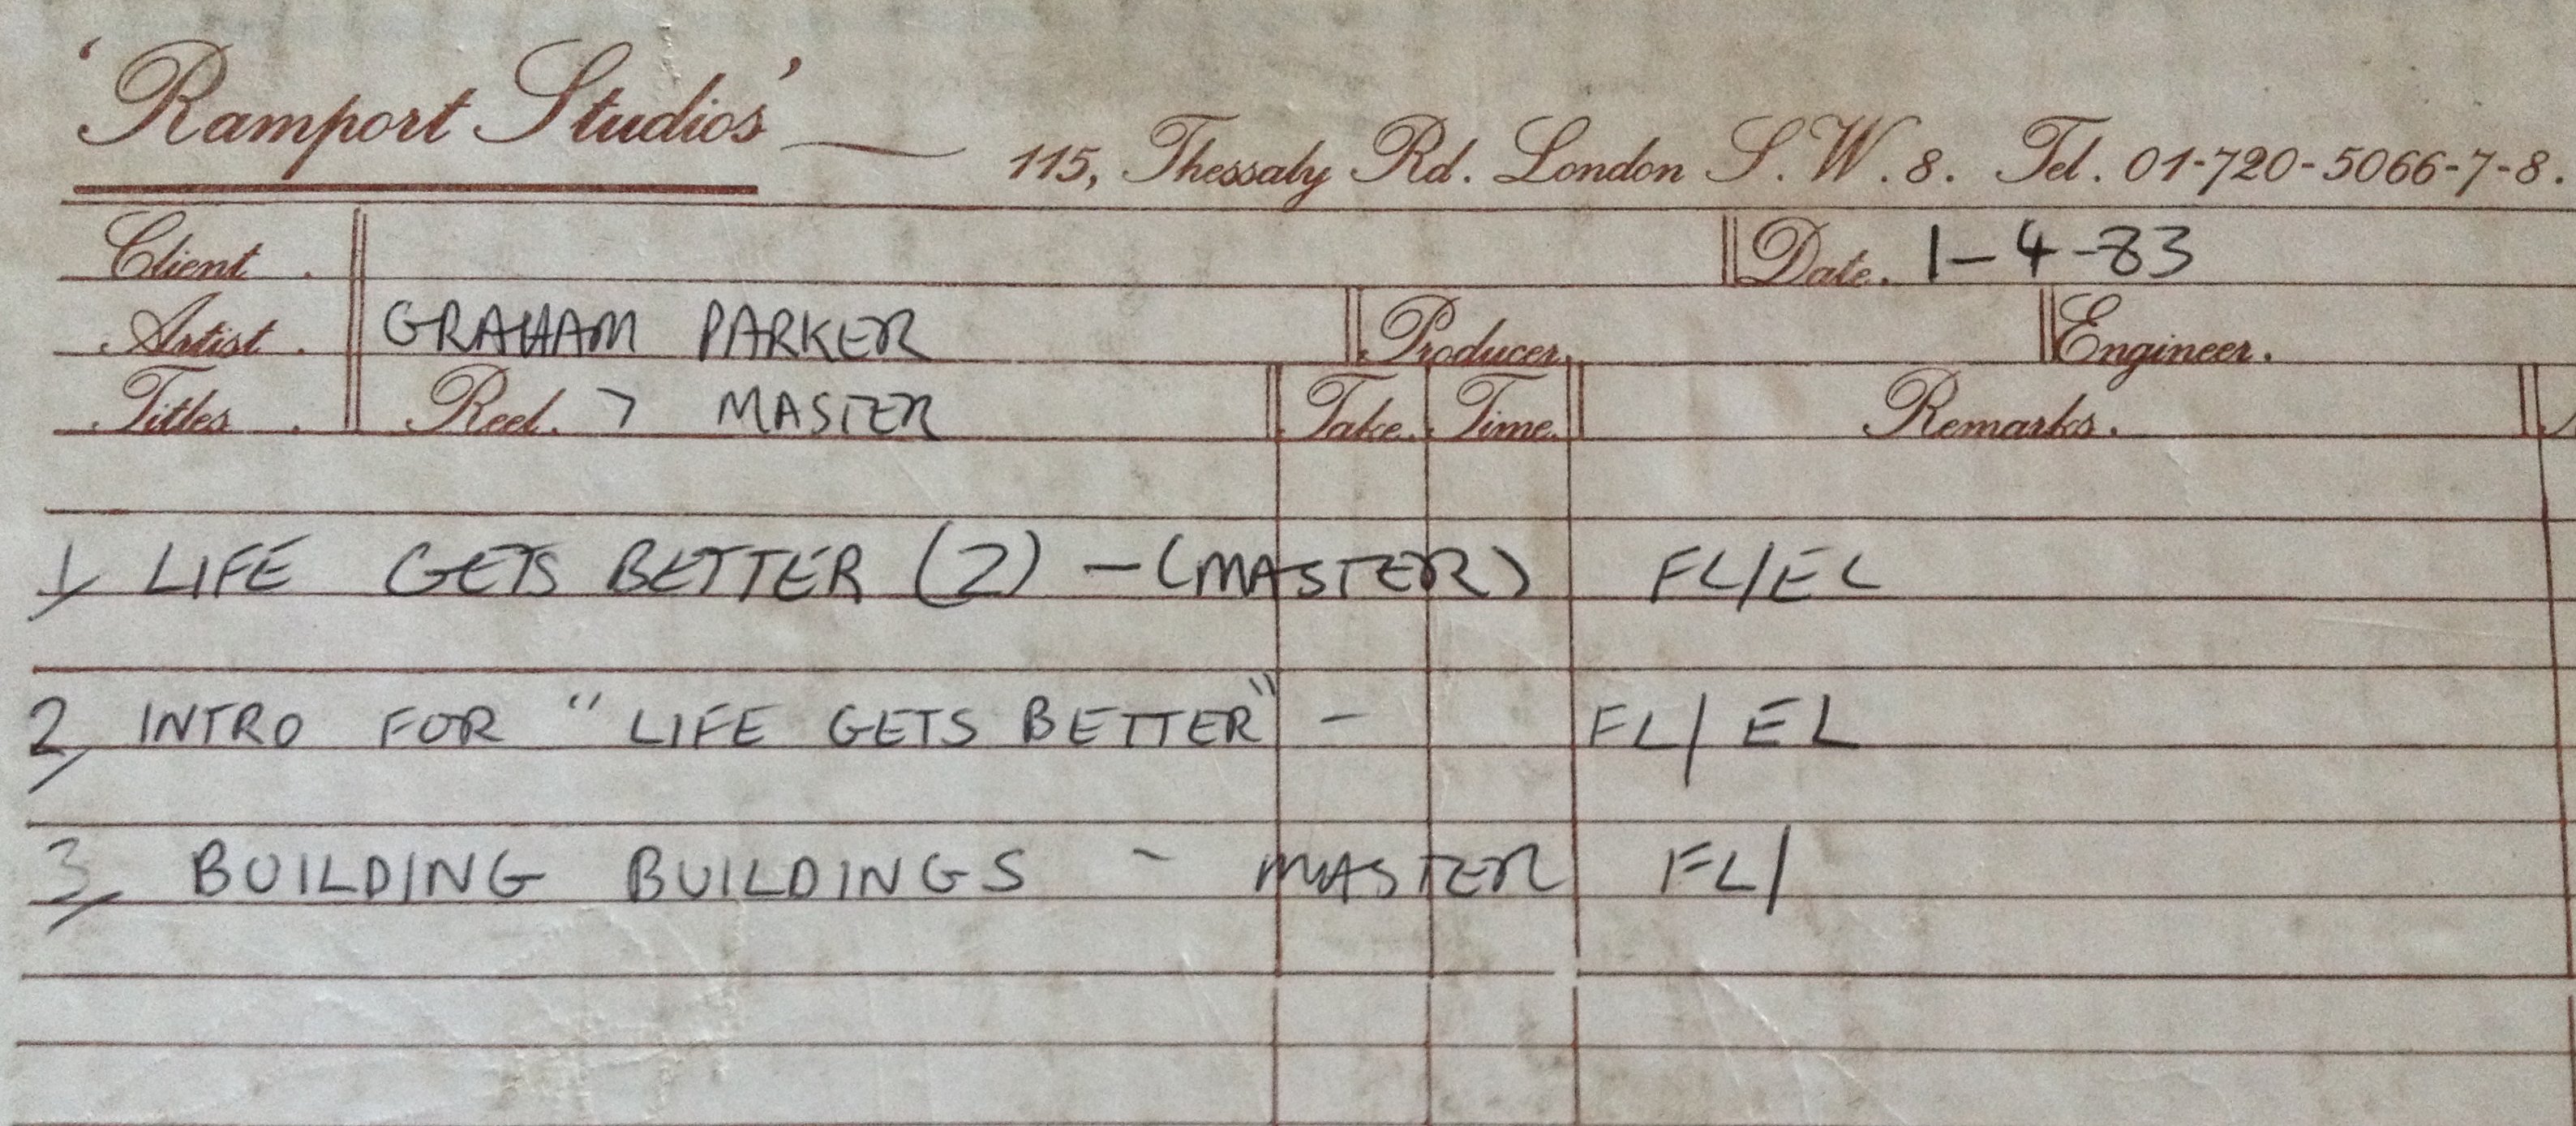 'Ramport Studios' — 115, Thessaly Rd. London S.W.8. Tel. 01-720-5066-7-8.
Client. Date. 1-4-83
Artist. GRAHAM PARKER Producer. Engineer.
Titles. Reel. 7 MASTER Take. Time. Remarks.
1/ LIFE GETS BETTER (2) - (MASTER) FL/EL
2/ INTRO FOR "LIFE GETS BETTER" - FL/EL
3/ BUILDING BUILDINGS - MASTER FL/